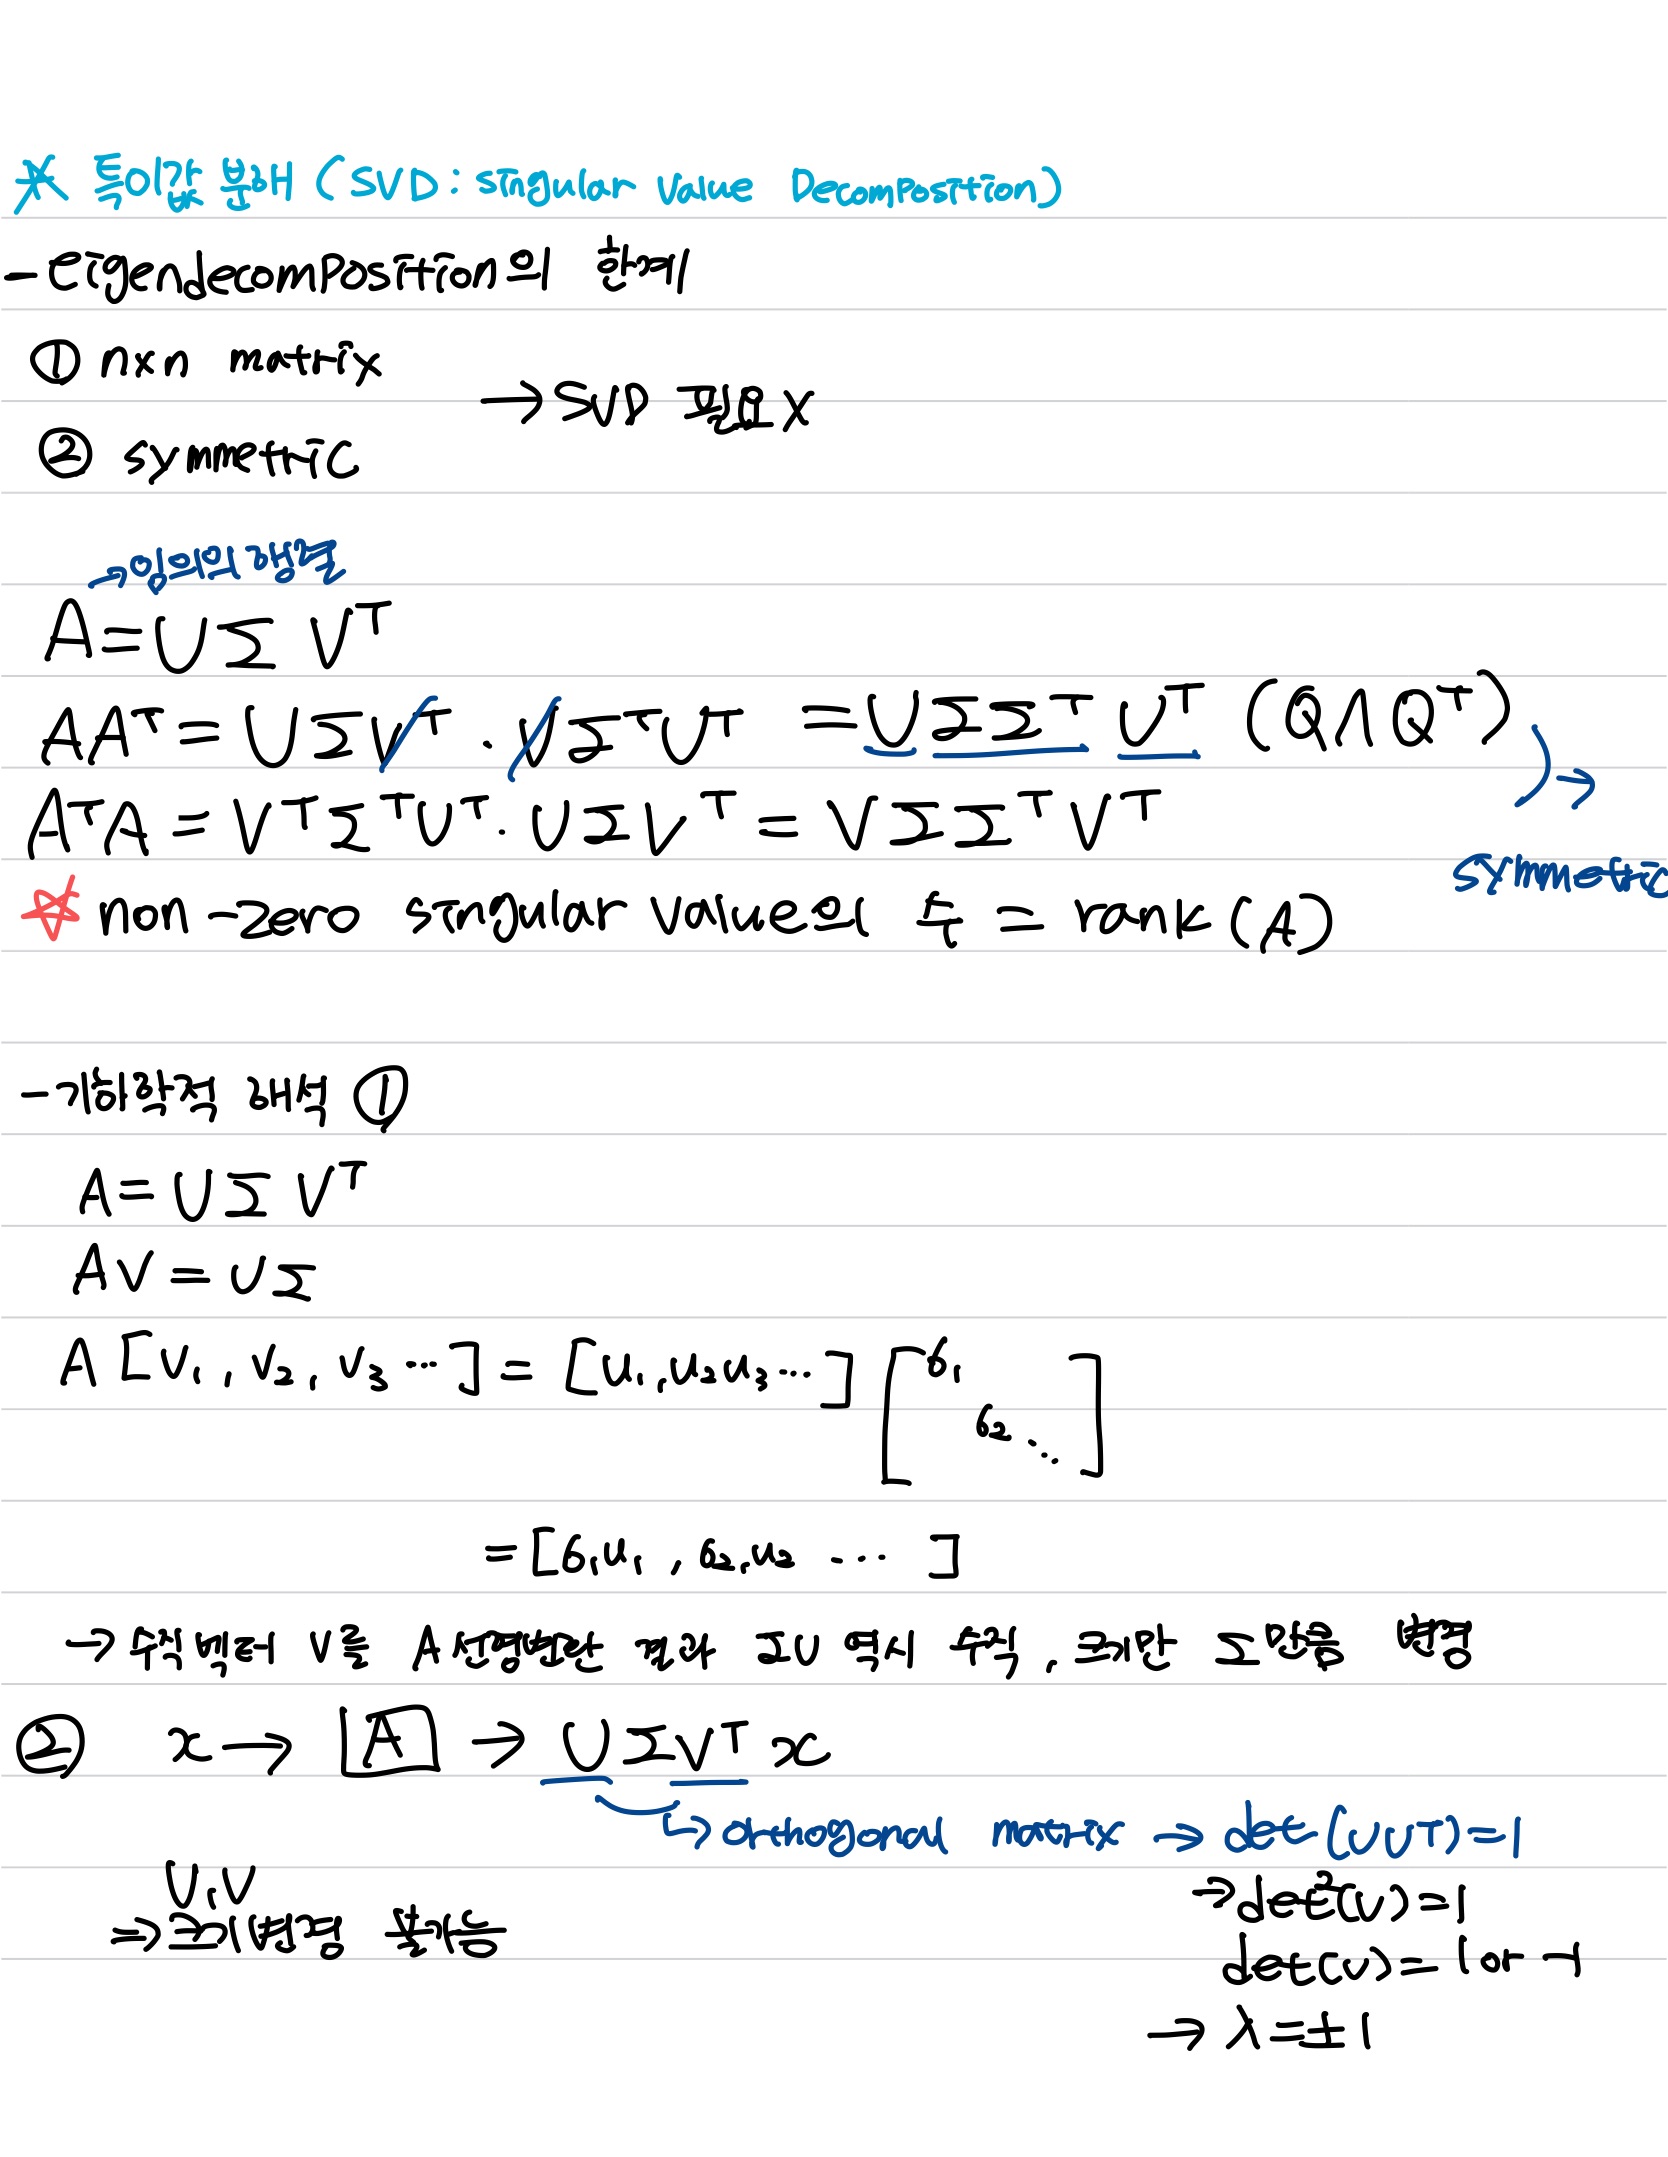 * 특이값 분해 (SVD : singular value Decomposition)
- eigendecomposition의 한계
① nxn matrix
→ SVD 필요 X
② symmetric
→ 임의의 행렬
A = UΣV^T
AA^T = UΣV^T · VΣ^TU^T = UΣΣ^TU^T (QΛQ^T)
A^TA = V^TΣ^TU^T · UΣV^T = VΣΣ^TV^T
→ symmetric
☆ non-zero singular value의 수 = rank(A)
- 기하학적 해석 ①
A = UΣV^T
AV = UΣ
A [v₁, v₂, v₃ ⋯] = [u₁, u₂ u₃ ⋯] [σ₁
σ₂ ⋱]
= [σ₁u₁, σ₂,u₂ ⋯ ]
→ 수직 벡터 V를 A 선형변환 결과 ΣU 역시 수직, 크기만 Σ만큼 변경
② x → [A] → UΣV^Tx
↳ orthogonal matrix → det(UU^T)=1
U,V
→ det²(U)=1
⇒ 크기변경 불가능
det(U)= 1 or -1
→ λ=±1